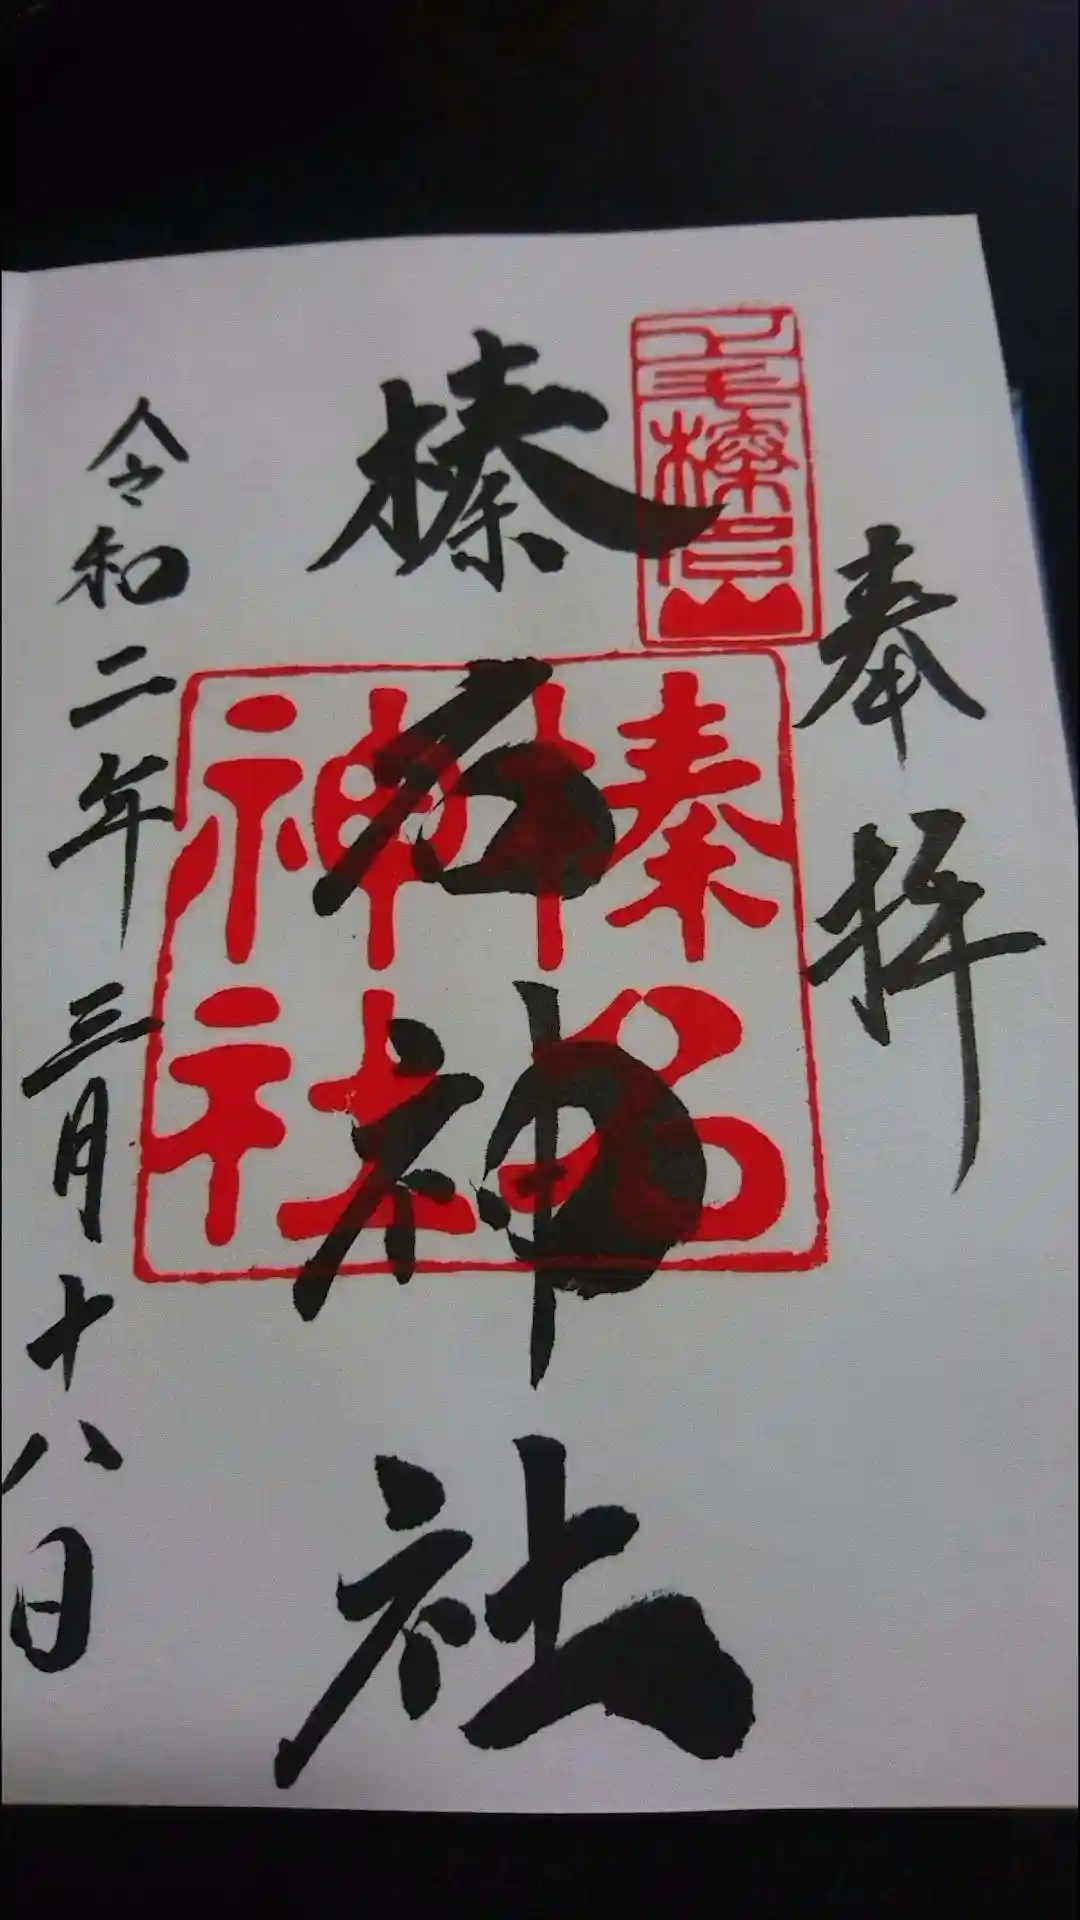 奉拝
上毛榛名山
榛名神社
榛名
神社
令和二年三月十八日